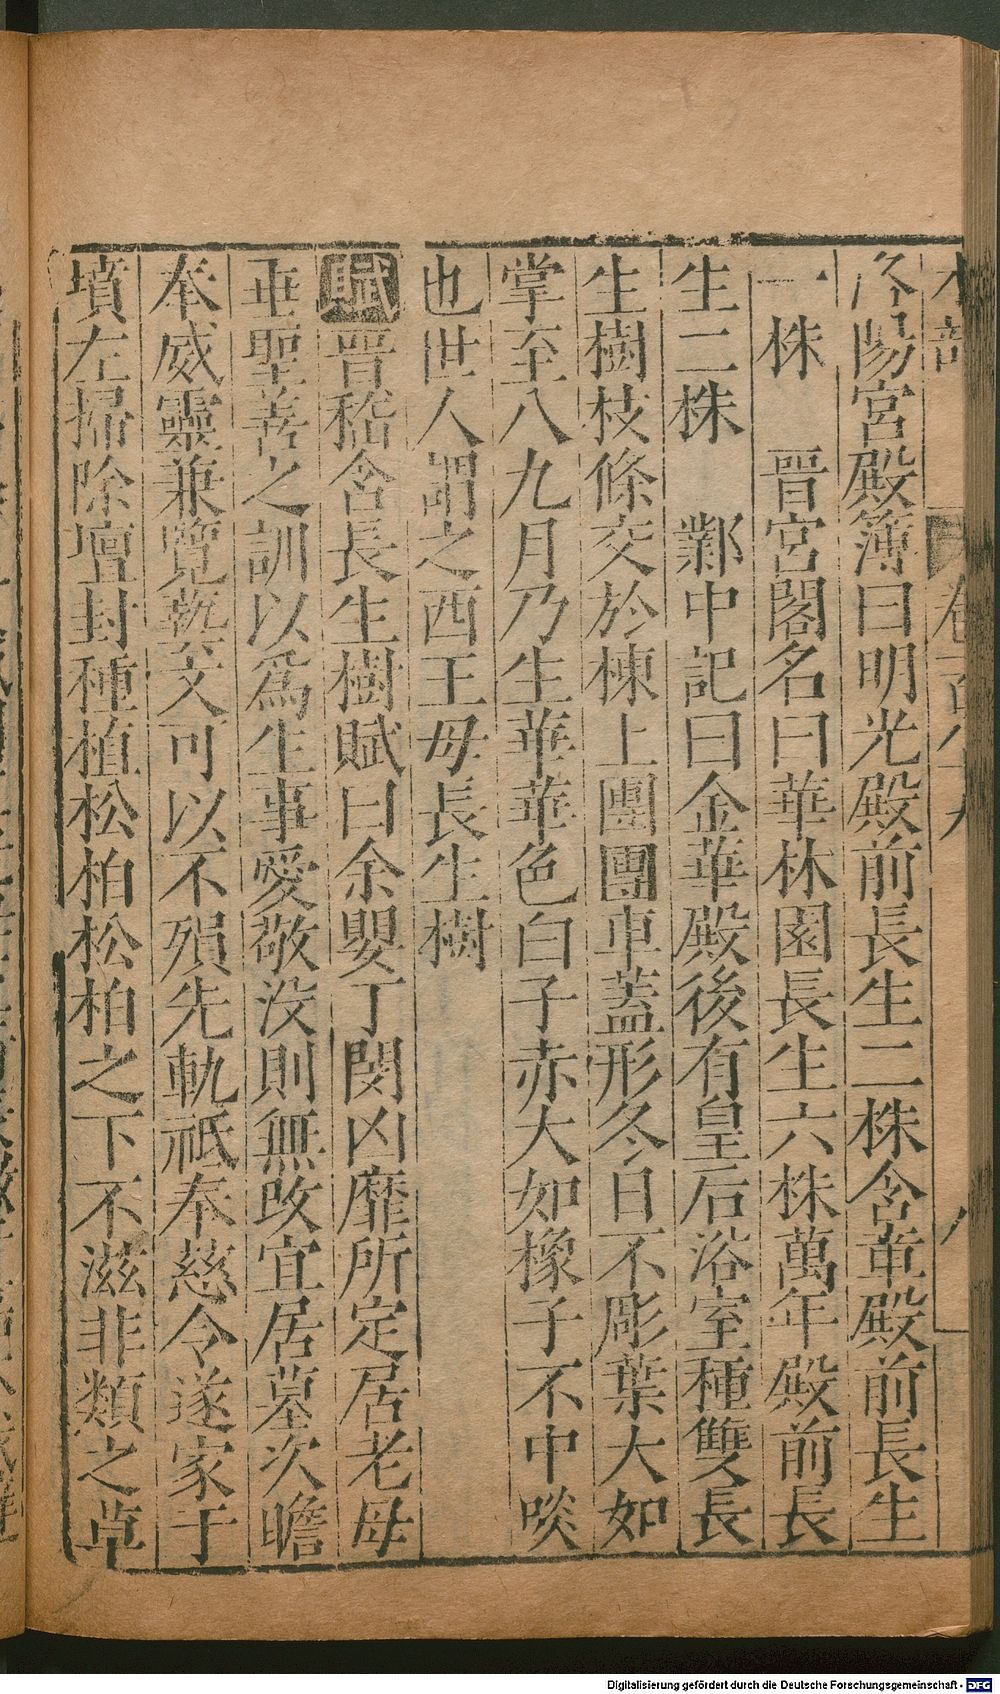 洛陽宮殿簿曰明光殿前長生二株含章殿前長生
一株　晉宮閣名曰華林園長生六株萬年殿前長
生二株　鄴中記曰金華殿後有皇后浴室種雙長
生樹枝條交於棟上團團車蓋形冬日不彫葉大如
掌至八九月乃生華華色白子赤大如橡子不中啖
也世人謂之西王母長生樹
賦晉嵇含長生樹賦曰余嬰丁閔凶靡所定居老母
垂聖善之訓以爲生事愛敬没則無改宜居墓次瞻
奉威靈兼覽藝文可以不殞先軌祗奉慈令遂家于
墳左掃除壇封種植松柏松柏之下不滋非類之草
Digitalisierung gefördert durch die Deutsche Forschungsgemeinschaft - DFG